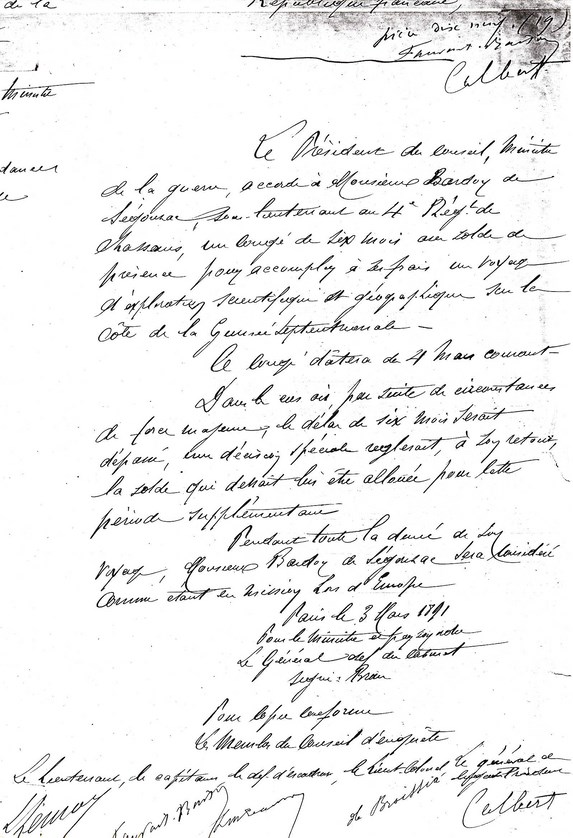 de la
République française,
pièce dix neuf (19)
Calbert
Ministre
Le Président du Conseil, Ministre
de la guerre, accorde à Monsieur Bardoy de
Ségonzac, sous-lieutenant au 4e Régt de
Chasseurs, un congé de six mois avec solde de
présence pour accomplir à ses frais un voyage
d'exploration scientifique et géographique sur la
côte de la Guinée septentrionale —
Ce congé datera de 4 Mars courant —
Dans le cas où, par suite de circonstances
de force majeure, le délai de six mois serait
dépassé, une décision spéciale réglerait, à son retour,
la solde qui devrait lui être allouée pour cette
période supplémentaire
Pendant toute la durée de son
voyage, Monsieur Bardoy de Ségonzac sera considéré
comme étant en mission hors d'Europe
Paris le 3 Mars 1891
Pour le Ministre et par son ordre
Le Général chef du Cabinet
signé: Brun
Pour copie conforme
Les Membres du Conseil d'enquête
Le Lieutenant, le capitaine, le chef d'escadron, le Lieut-Colonel, le général de
Calbert